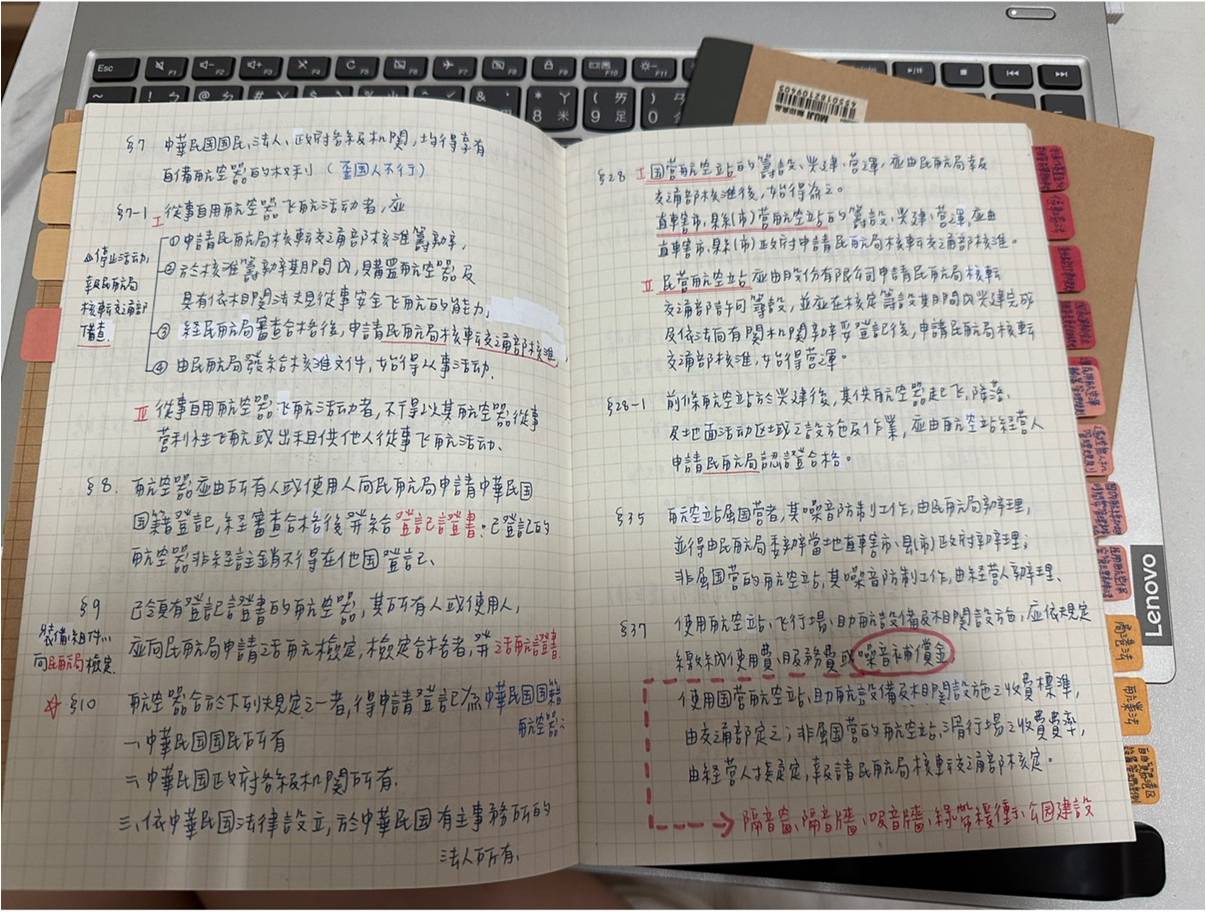 §7 中華民国国民、法人、政府各級机関,均得享有
自備航空器的权利(歪国人不行)
§7-1 I 從事自用航空器飞航活動者,应
①申請民航局核轉交通部核准籌辦,
②於核准籌辦期間内,購置航空器及
具有依相関法規從事安全飞航的能力,
③經民航局審查合格後,申請民航局核轉交通部核准,
④由民航局發給核准文件,始得从事活動、
停止活動,
報民航局
核轉交通部
備查.
IV 從事自用航空器飞航活動者,不得以其航空器從事
营利性飞航或出租供他人從事飞航活動、
§8. 航空器应由所有人或使用人向民航局申請中華民国
国籍登記,經審查合格後發給登記證書;已登記的
航空器非經註銷不得在他国登記、
§9 已領有登記證書的航空器,其所有人或使用人,
应向民航局申請适航檢定,檢定合格者,發适航證書
裝備.組件..
向民航局檢定.
☆ §10 航空器合於下列規定之一者,得申請登記為中華民国国籍
航空器:
一、中華民国国民所有
二、中華民国政府各級机関所有.
三、依中華民国法律設立,於中華民国有主事務所的
法人所有.
§28 I 国营航空站的籌設、兴建、营運,应由民航局報
交通部核准後,始得為之。
直轄市、縣(市)营航空站的籌設、兴建、营運,应由
直轄市、縣(市)政府申請民航局核轉交通部核准。
II 民营航空站应由股份有限公司申請民航局核轉
交通部許可籌設,並应在核定籌設期間内兴建完成
及依法向有関机関辦妥登記後,申請民航局核轉
交通部核准,始得营運。
§28-1 前條航空站於兴建後,其供航空器起飞、降落、
及地面活動区域之設施及作業,应由航空站經营人
申請民航局認證合格。
§35 航空站屬国营者,其噪音防制工作,由民航局辦理,
並得由民航局委辦當地直轄市、縣(市)政府辦理;
非屬国营的航空站,其噪音防制工作,由經营人辦理、
§37 使用航空站、飞行場、助航設備及相関設施,应依規定
繳納使用費、服務費或噪音補償金
使用国营航空站、助航設備及相関設施之收費標準,
由交通部定之;非屬国营的航空站、飞行場之收費費率,
由經营人擬定,報請民航局核轉交通部核定。
隔音窗、隔音牆、吸音牆、綠帶緩衝、公园建設
Esc
F1
F2
F3
F4
F5
F6
F7
F8
F9
F10
F11
MUJI 無印良品
4550182109405
Lenovo
商港法
航業法